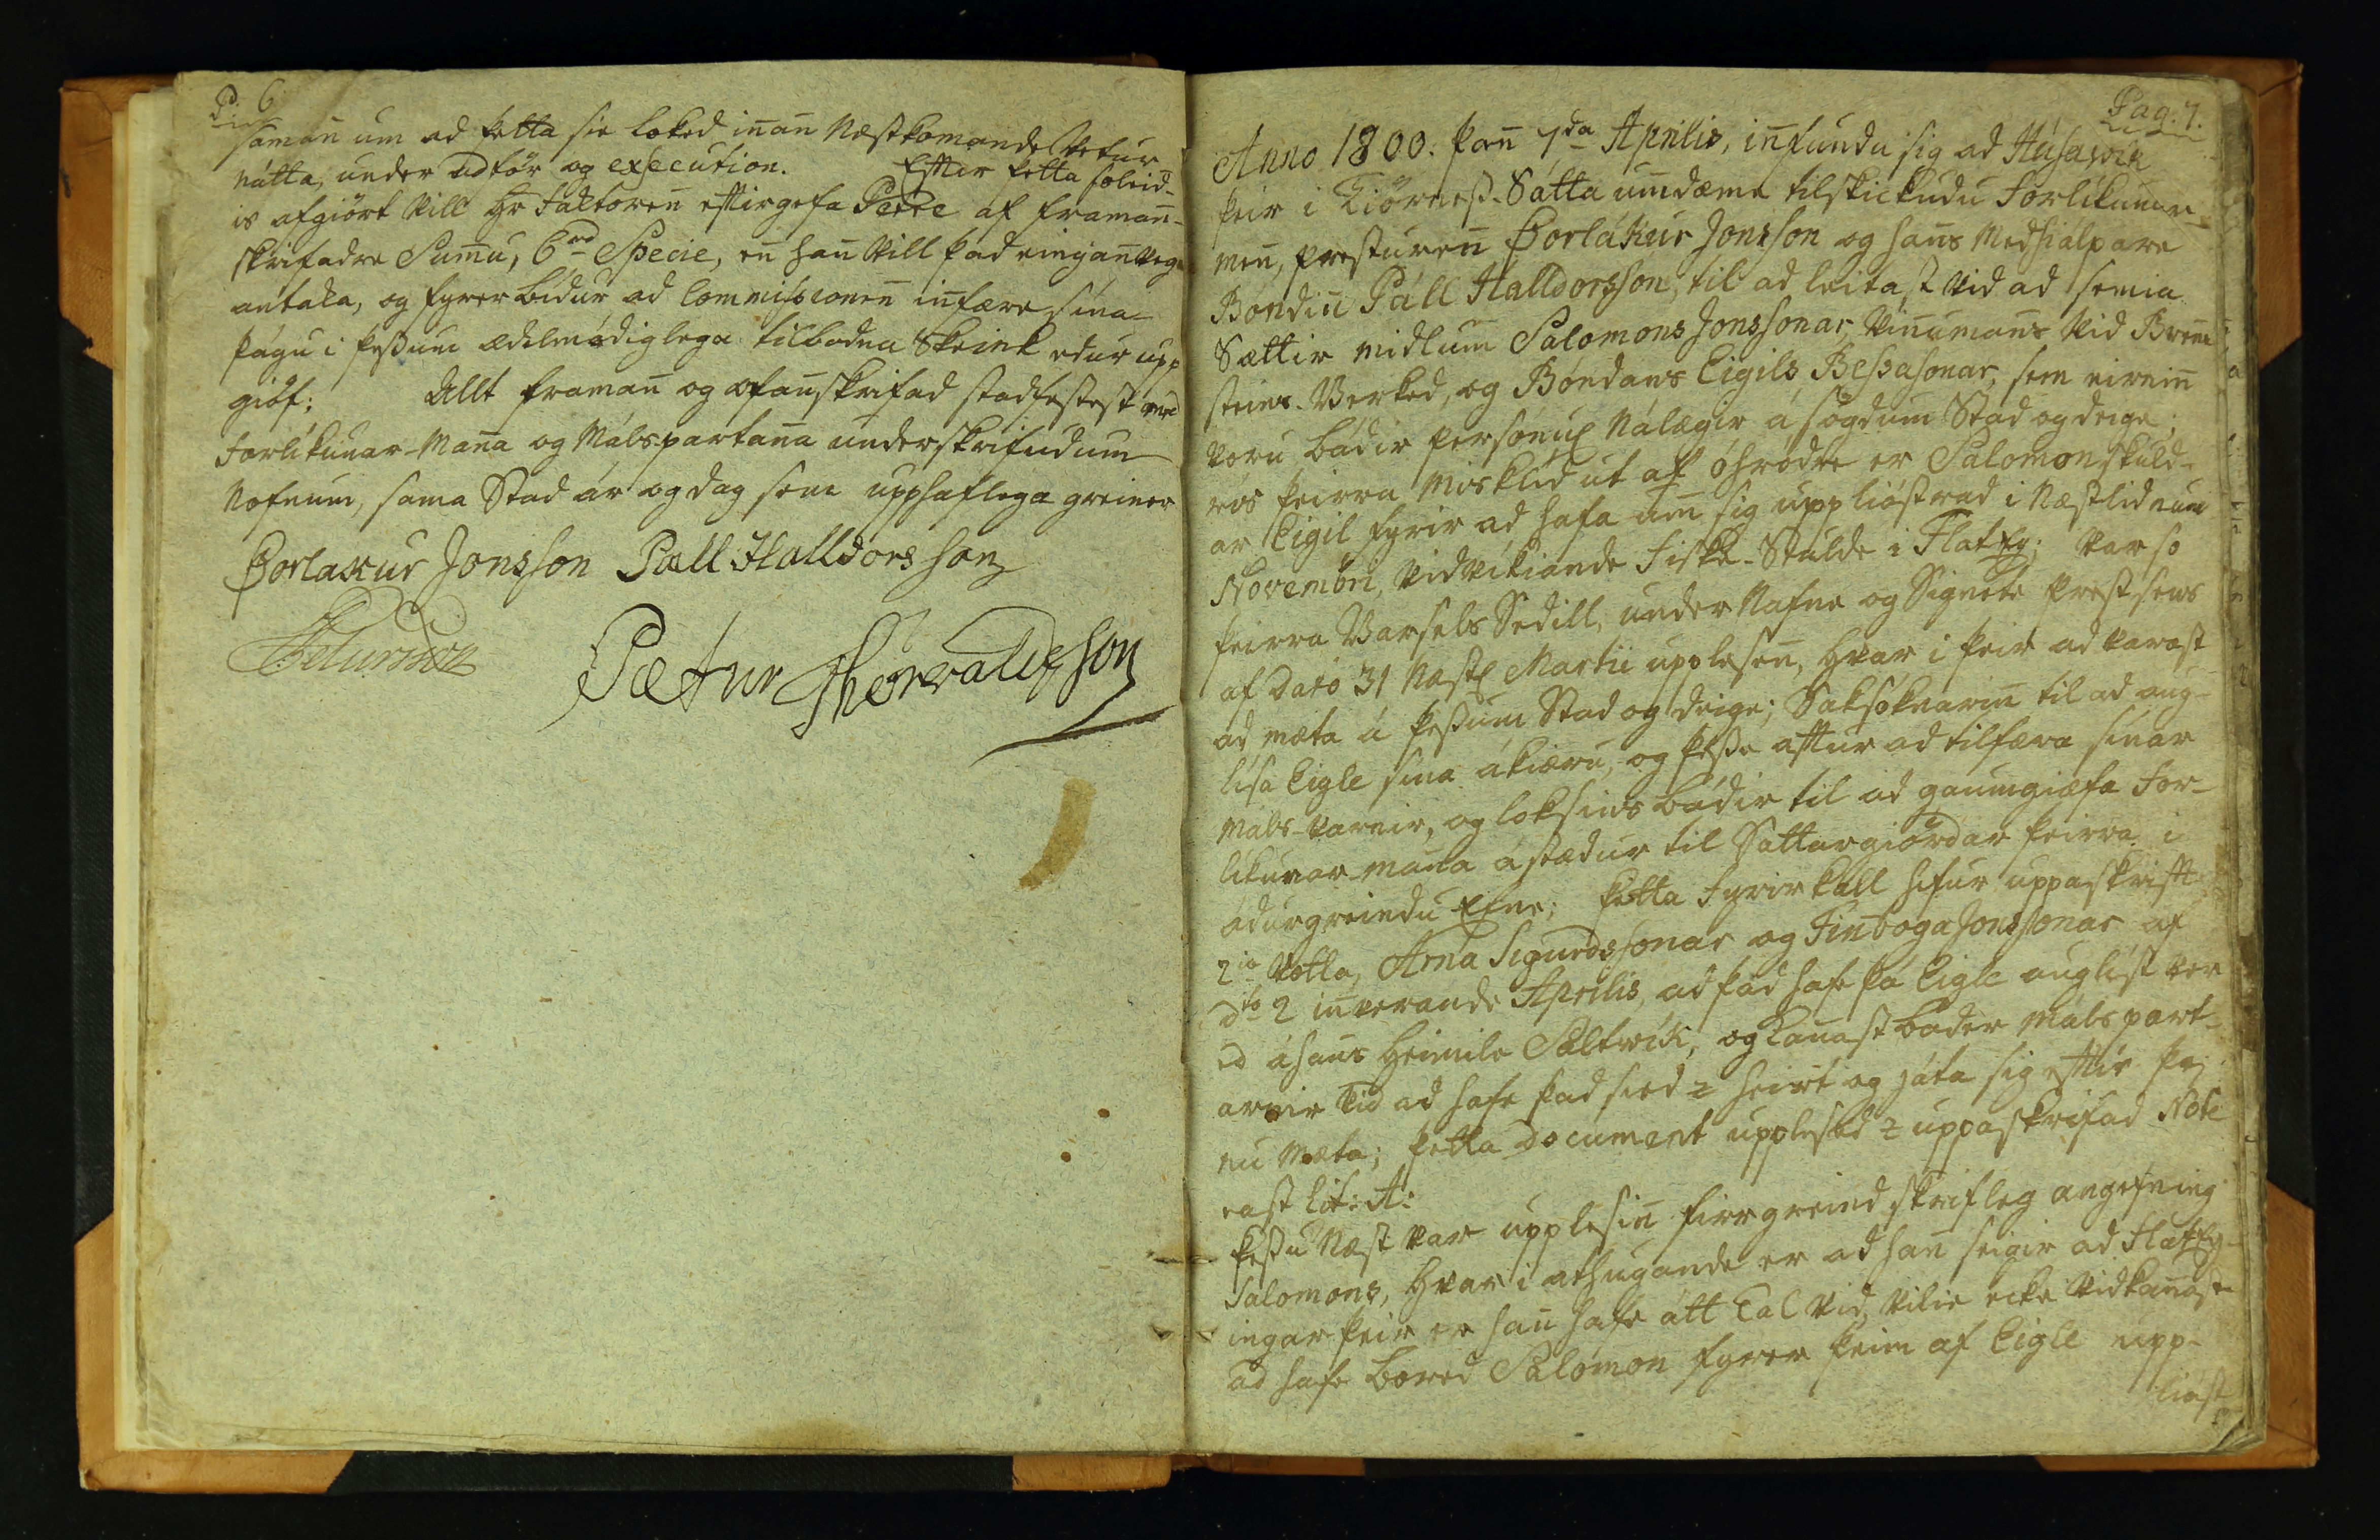 P. 6
saman um ad þetta sie loked innan Næstkomande Vetur
nátta, under adför og execution. Efter þetta soleid-
is afgiört vill Hr Faktoren eftirgefa Petre af framan-
skrifadre Summu, 6 rd Specie, en han vill þad eingan veg
antaka, og fyrer bidur ad Commissionen infære sina
þágu i þessum ædelmódiglega tilbodna Skeink edur upp
giöf; Allt framan og ofanskrifad stadfestest med
Forlikunar-Manna og Málspartanna underskrifudum
Nöfnum, sama Stad ár og dag sem upphaflega greiner
Þorlakur Jonsson Pall Halldorsson
Petursson
Pætur Thorvaldsson
Pag. 7.
Anno 1800. þan 7da Aprilis, infundu sig ad Húsavík
þeir i Tiörness-Sátta umdæme tilskickudu Forlikunar
menn, presturenn Þorlákur Jonsson og hans Medhialpare
Bóndin Páll Halldorsson, til ad leitast vid ad semia
Sættir midlum Salomons Jonssonar, Vinumans vid Brenne
steins-Verked, og Bóndans Eigils Bessasonar, sem eirnin
voru bádir persónul. Nálægir á sögdum Stad og deige;
reis þeirra Misklid ut af óhrodre er Salomon skuld-
ar Eigil fyrir ad hafa um sig uppliostrad i Næstlidnum
Novembri, Vidvikiande Fiska-Stulde i Flatey; var so
þeirra Varsels Sedill, under Nafne og Signete Prestsens
af Dato 31 Næstl. Martii upplesen, hvar i þeir ad varast
ad mæta á þessum Stad og deige; Saksóknarin til ad aug-
lisa Eigle sina ákiæru, og þesse aftur ad tilfæra sinar
Máls-varnir, og loksins bádir til ad gaumgiæfa For-
likunar-manna ástædur til Sáttargiördar þeirra i
ádurgreindu Efne; þetta Fyrirkall hefur uppáskrift
2ia Votta, Arna Sigurdssonar og Finboga Jonssonar af
dto 2 inverande Aprilis, ad þad hafe þá Eigle auglist ver
id á hans Heimile Saltvik, og kannast báder Málspart-
arnir vid ad hafe þad sied & heirt og játa sig eftir þvi
nú Mæta; þetta Document upplesed & uppáskrifad Note
rast Lit: A:
þessu Næst var upplesin firrgreind skrifleg angefning
Salomons, hvar i athugande er ad han seigir ad Flatey-
ingar þeir er han hafe átt tal vid, vilie ecke vidkannast
ad hafe bored Salomon fyrer þeim af Eigle upp-
liost